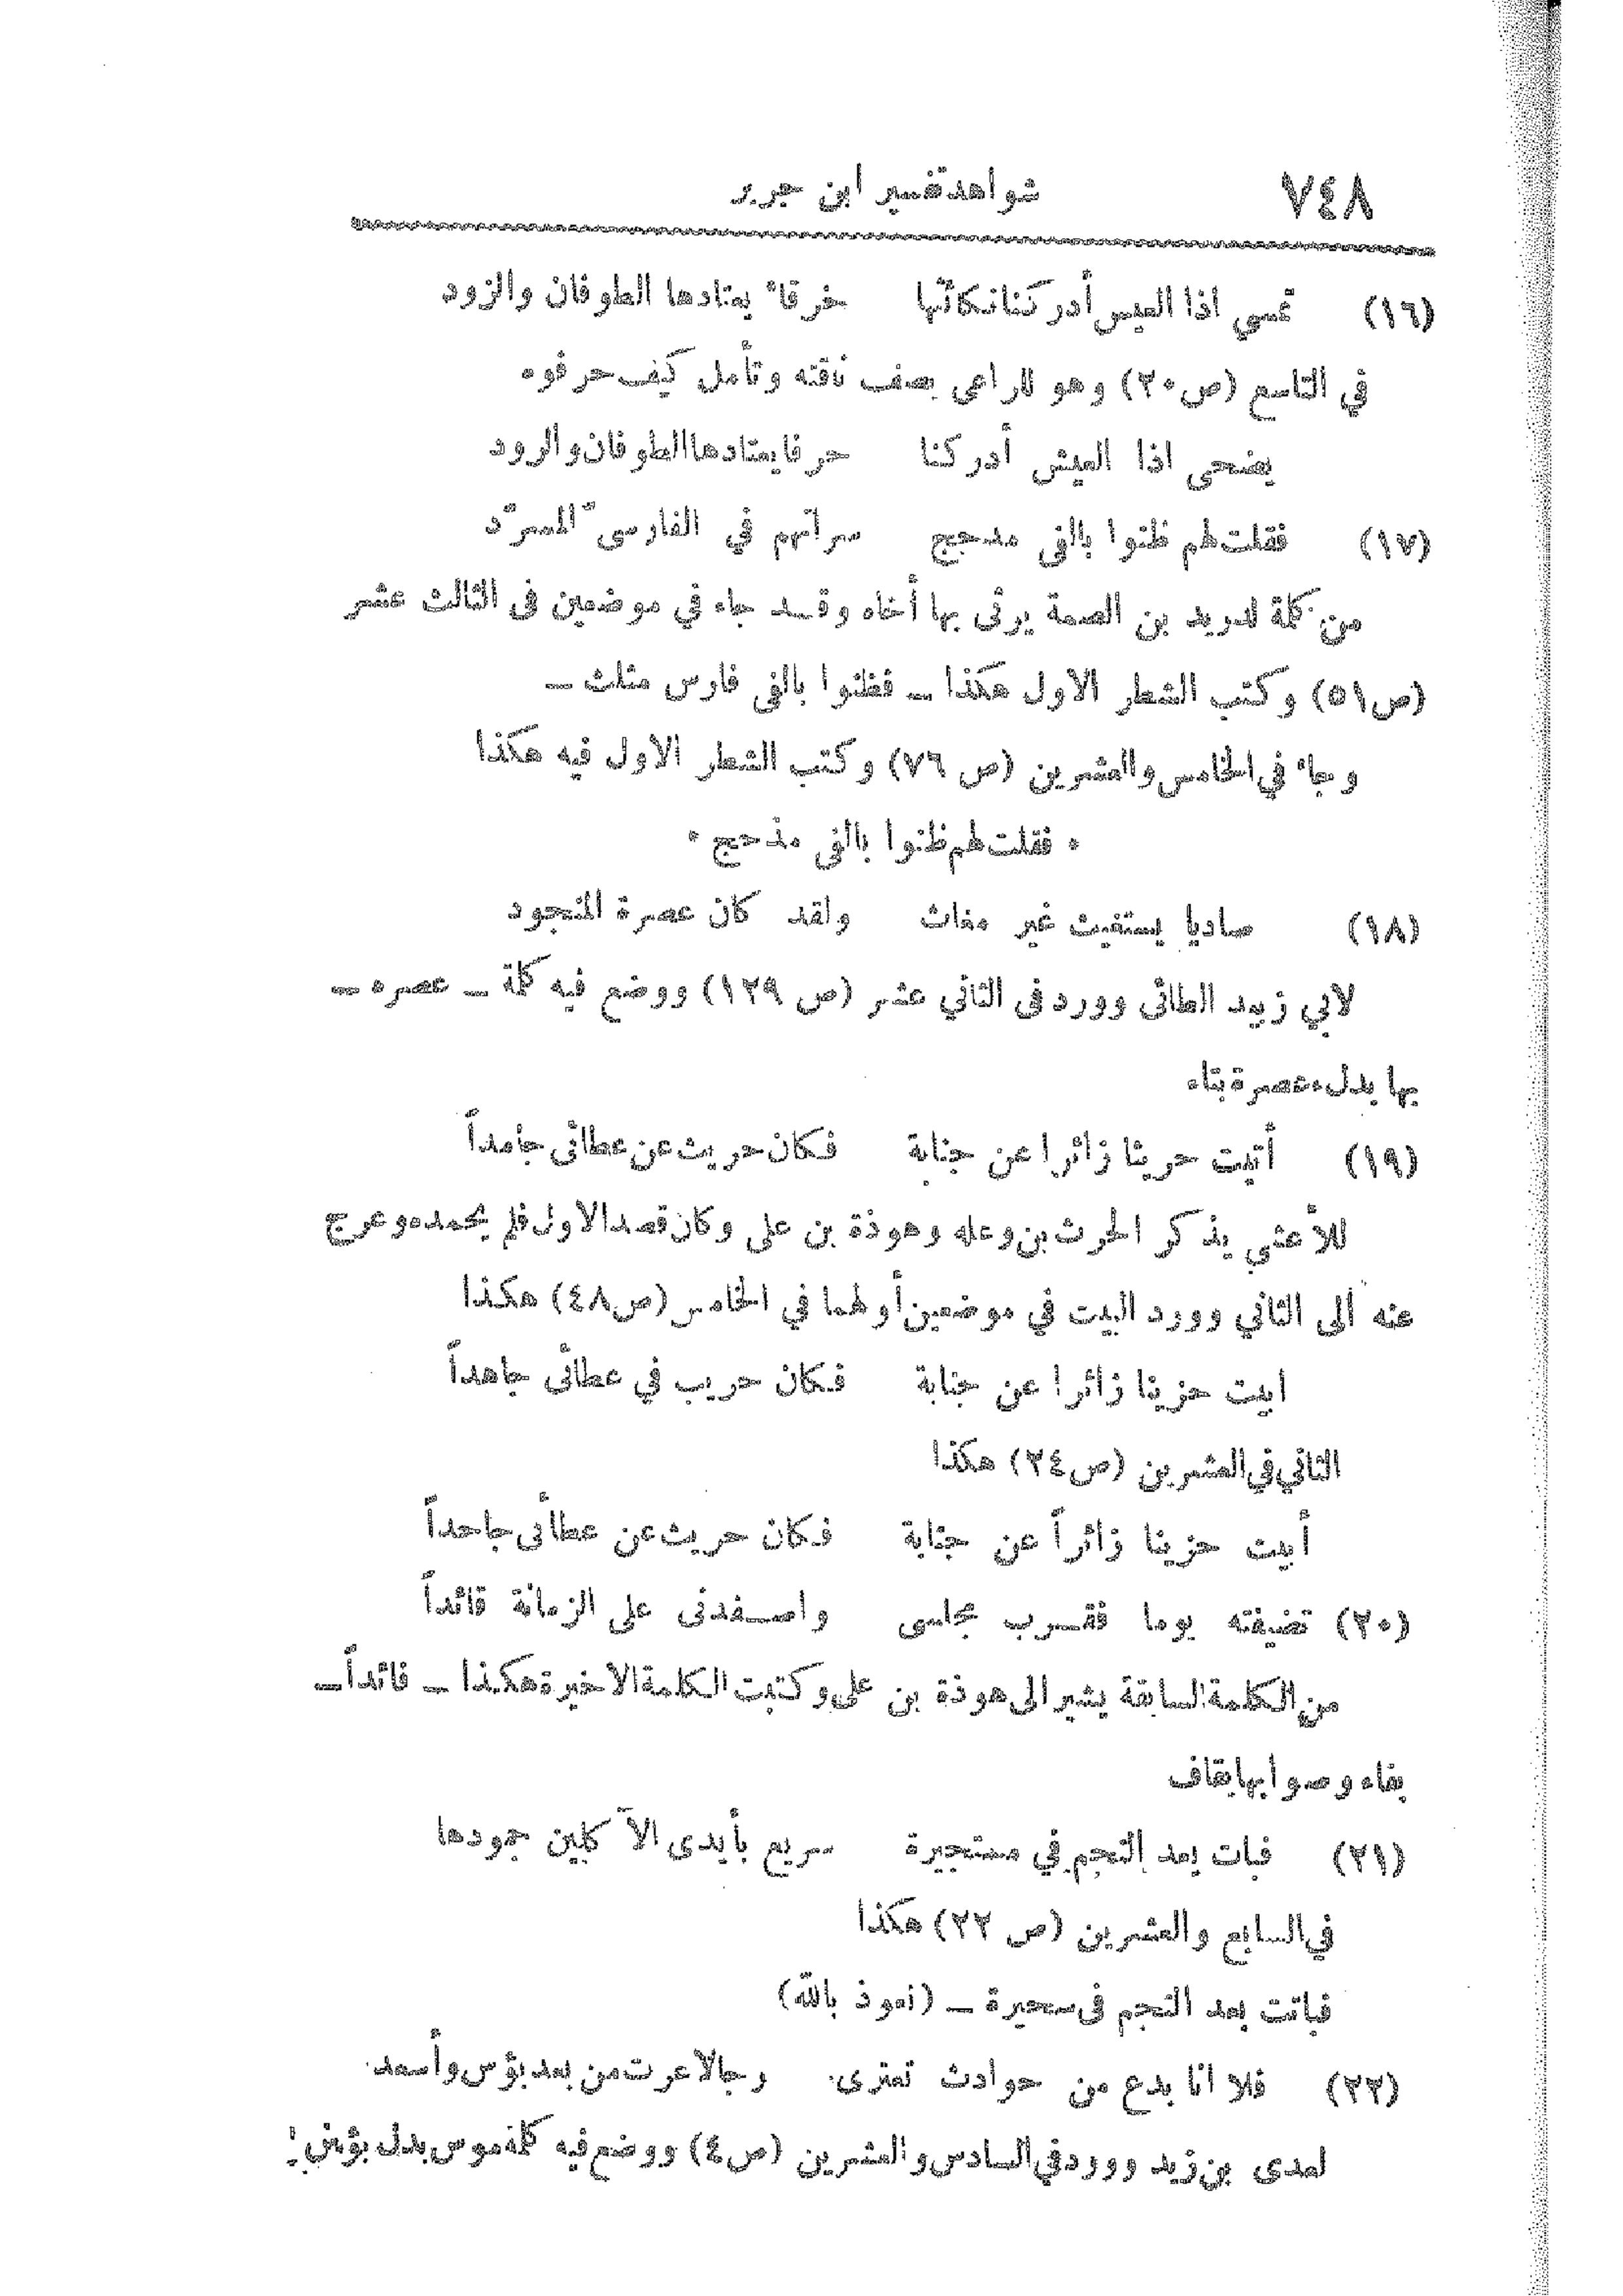 ٧٤٨ شواهد تفسير ابن جرير
(١٦) تمسي اذا العيس أدركنا نكائثها خرقاء يعتادها الطوفان والزود
في التاسع (ص٢٠) وهو للراعى يصف ناقته وتأمل كيف حرفوه
يضحى اذا العيش أدركنا حرفا يعتادها الطوفان والرود
(١٧) فقلت لهم ظنوا بالفى مدجج سراتهم في الفارسىّ المسرّد
من كلمة لدريد بن الصمة يرثى بها أخاه وقد جاء في موضعين فى الثالث عشر
(ص٥١) وكتب الشطر الاول هكذا ــ فظنوا بالفى فارس مثلث ــ
وجاء في الخامس والعشرين (ص ٧٦) وكتب الشطر الاول فيه هكذا
* فقلت لهم ظنوا بالفى مذحج *
(١٨) صاديا يستغيث غير مغاث ولقد كان عصرة المنجود
لابي زبيد الطائى وورد فى الثاني عشر (ص ١٢٩) ووضع فيه كلمة ــ عصره ــ
بها بدل عصرة بتاء
(١٩) أتيت حريثا زائرا عن جنابة فكان حريث عن عطائى جامداً
للأعشي يذكر الحرث بن وعله وهوذة بن على وكان قصد الاول فلم يحمده وعرج
عنه الى الثاني وورد البيت في موضعين أولهما في الخامس (ص٤٨) هكذا
ابيت حزينا زائرا عن جنابة فكان حريب في عطائى جاهداً
الثاني في العشرين (ص٢٤) هكذا
أبيت حزينا زائراً عن جنابة فكان حريث عن عطائى جاحداً
(٢٠) تضيفته يوما فقرب مجلسى واصفدنى على الزمانة قائداً
من الكلمة السابقة يشير الى هوذة بن على وكتبت الكلمة الاخيرة هكذا ــ فائداً ــ
بفاء وصوابها بقاف
(٢١) فبات يعد النجم في مستحيرة سريع بأيدى الآكلين جمودها
في السابع والعشرين (ص ٢٢) هكذا
فباتت بعد النجم فى سحيرة ــ (نعوذ بالله)
(٢٢) فلا انا بدع من حوادث تعترى رجالا عرت من بعد بؤس وأسعد
لعدى بن زيد وورد في السادس والعشرين (ص٤) ووضع فيه كلمة موس بدل بؤس !